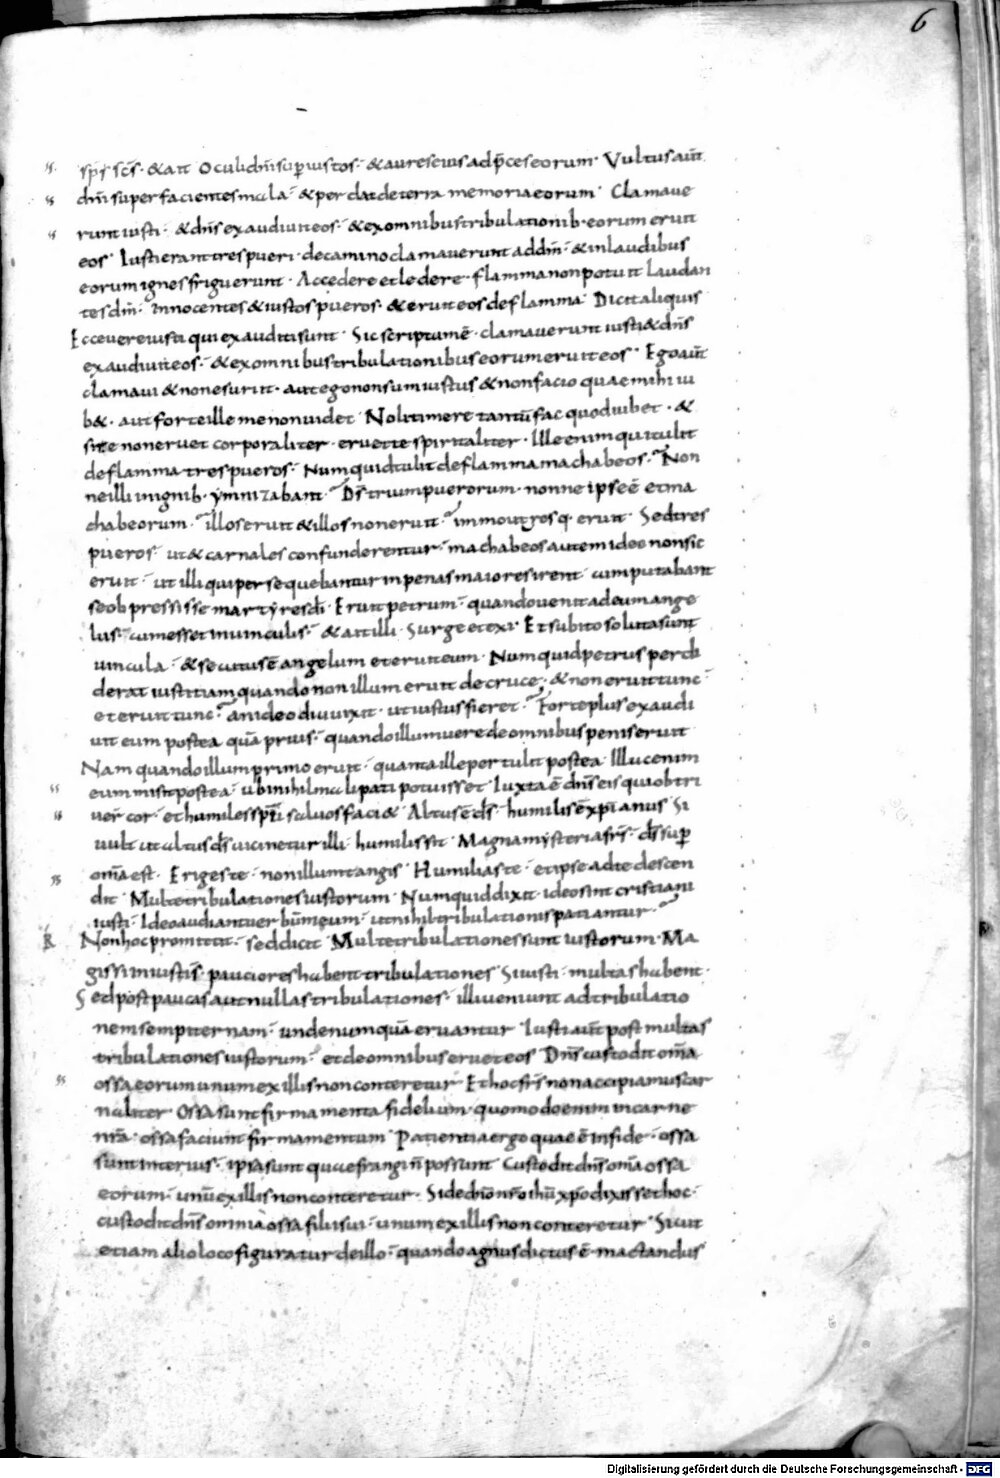 6
sps scs · & ait Oculi dni super iustos · & aures eius ad p̄ces eorum · Vultus aut̄
dn̄i super facientes mala · & perdat de terra memoria eorum · Clamaue
runt iusti · & dn̄s exaudiuit eos · & ex omnibus tribulationib· eorum eruit
eos · Iusti erant tres pueri · de camino clamauerunt ad dn̄m · & in laudibus
eorum ignes friguerunt · Accedere et ledere · flamma non potuit laudan
tes dn̄m · innocentes & iustos pueros · & eruit eos de flamma · Dicit aliquis
Ecce uere iusti qui exauditi sunt · Sic scriptum ē · clamauerunt iusti & dn̄s
exaudiuit eos · & ex omnibus tribulationibus eorum eruit eos · Ego aut̄
clamaui & non eruit · aut ego non sum iustus & non facio quae mihi iu
b& · aut forte ille me non uidet Noli timere tantū fac quod iubet · &
si te non eruet corporaliter · eruet te spiritaliter · Ille enim qui tulit
de flamma tres pueros · Numquid tulit de flamma machabeos · Non
ne illi in ignib· ymnizabant · Ds̄ trium puerorum · nonne ipse ē et ma
chabeorum · illos eruit & illos non eruit · immo utrosq· eruit · Sed tres
pueros · ut & carnales confunderentur · machabeos autem ideo non sic
eruit · ut illi qui persequebantur in penas maiores irent · cum putabant
se obpressisse martyres dī · Eruit petrum · quando uenit ad eum ange
lus · cum esset in uinculis · & ait illi · Surge et exi · Et subito soluta sunt
uincula · & secutus ē angelum et eruit eum · Numquid petrus perdi
derat iustitiam quando non illum eruit de cruce · & non eruit tunc ·
et eruit tunc · an ideo diu uixit · ut iustus fieret · Forte plus exaudi
uit eum postea quā prius · quando illum uere de omnibus penis eruit
Nam quando illum primo eruit · quanta ille pertulit postea Illuc enim
eum misit postea · ubi nihil mali pati potuisset Iuxta ē dn̄s eis qui obtri
uer̄ cor · et humiles spū saluos faci& Altus ē ds̄ · humilis ē xp̄ianus · Si
uult ut altus ds̄ uicinetur illi · humilis sit · Magna mysteria frs̄ · ds̄ sup̄
om̄a est · Erigeste · non illum tangis · Humiliaste · et ipse ad te descen
dit Multe tribulationes iustorum · Numquid dixit · ideo sint cristiani
iusti · Ideo audiant uerbū meum · ut nihil tribulationis patiantur ·
Non hoc promittit · sed dicit Multe tribulationes sunt iustorum · Ma
gis si iniusti s̄ · pauciores habent tribulationes · Si iusti · multas habent ·
Sed post paucas aut nullas tribulationes · illi ueniunt ad tribulatio
nem sempiternam · unde numquā eruantur Iusti aut̄ post multas
tribulationes iustorum · et de omnibus eruet eos Dn̄s custodit om̄a
ossa eorum unum ex illis non conteretur Et hoc frs̄ non accipiamus car
naliter Ossa sunt firmamenta fidelium · quomodo enim in carne
nr̄a · ossa faciunt firmamentum Patientia ergo quae ē in fide · ossa
sunt interius · ipsa sunt quae frangi n̄ possunt Custodit dn̄s om̄a ossa
eorum · unū ex illis non conteretur · Si de dn̄o nr̄o ihū xp̄o dixisset hoc ·
custodit dn̄s omnia ossa filii sui · unum ex illis non conteretur Sicut
etiam alio loco figuratur de illo · quando agnus dictus ē mactandus
Digitalisierung gefördert durch die Deutsche Forschungsgemeinschaft - DFG